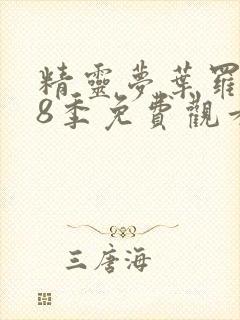 精靈夢葉羅
8季免費觀
三唐海